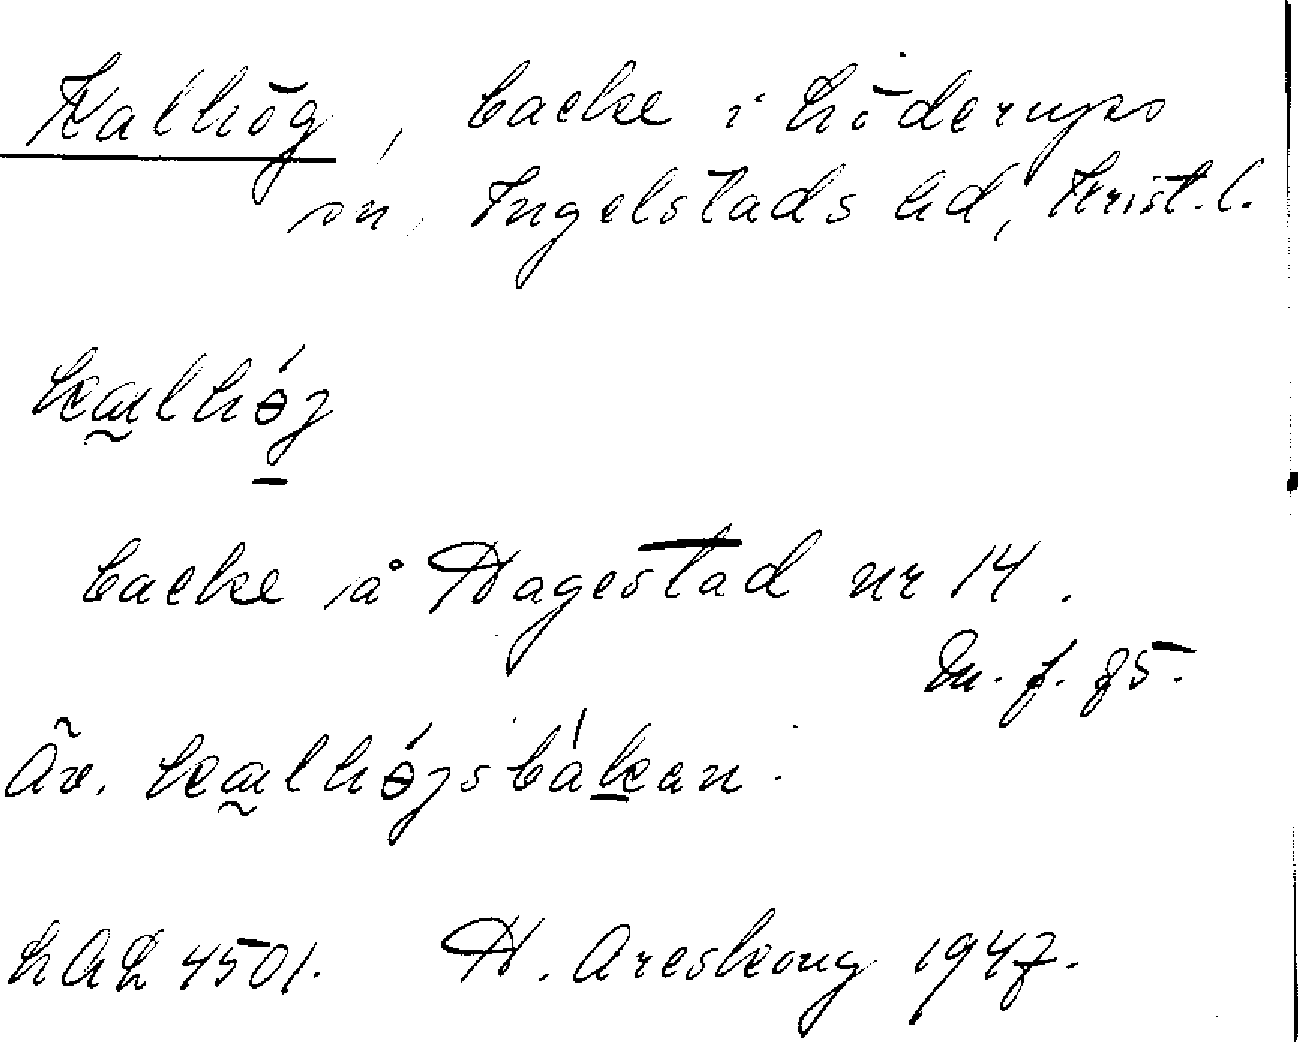 Kalhög, backe i Löderups
sn, Ingelstads hd, Krist. l.
kɑ̰lhǿj
backe å Hagestad nr 14.
M. f. 85.
Äv. kɑ̰lhǿjsbákan.
LAL 4501. H. Areskoug 1947.